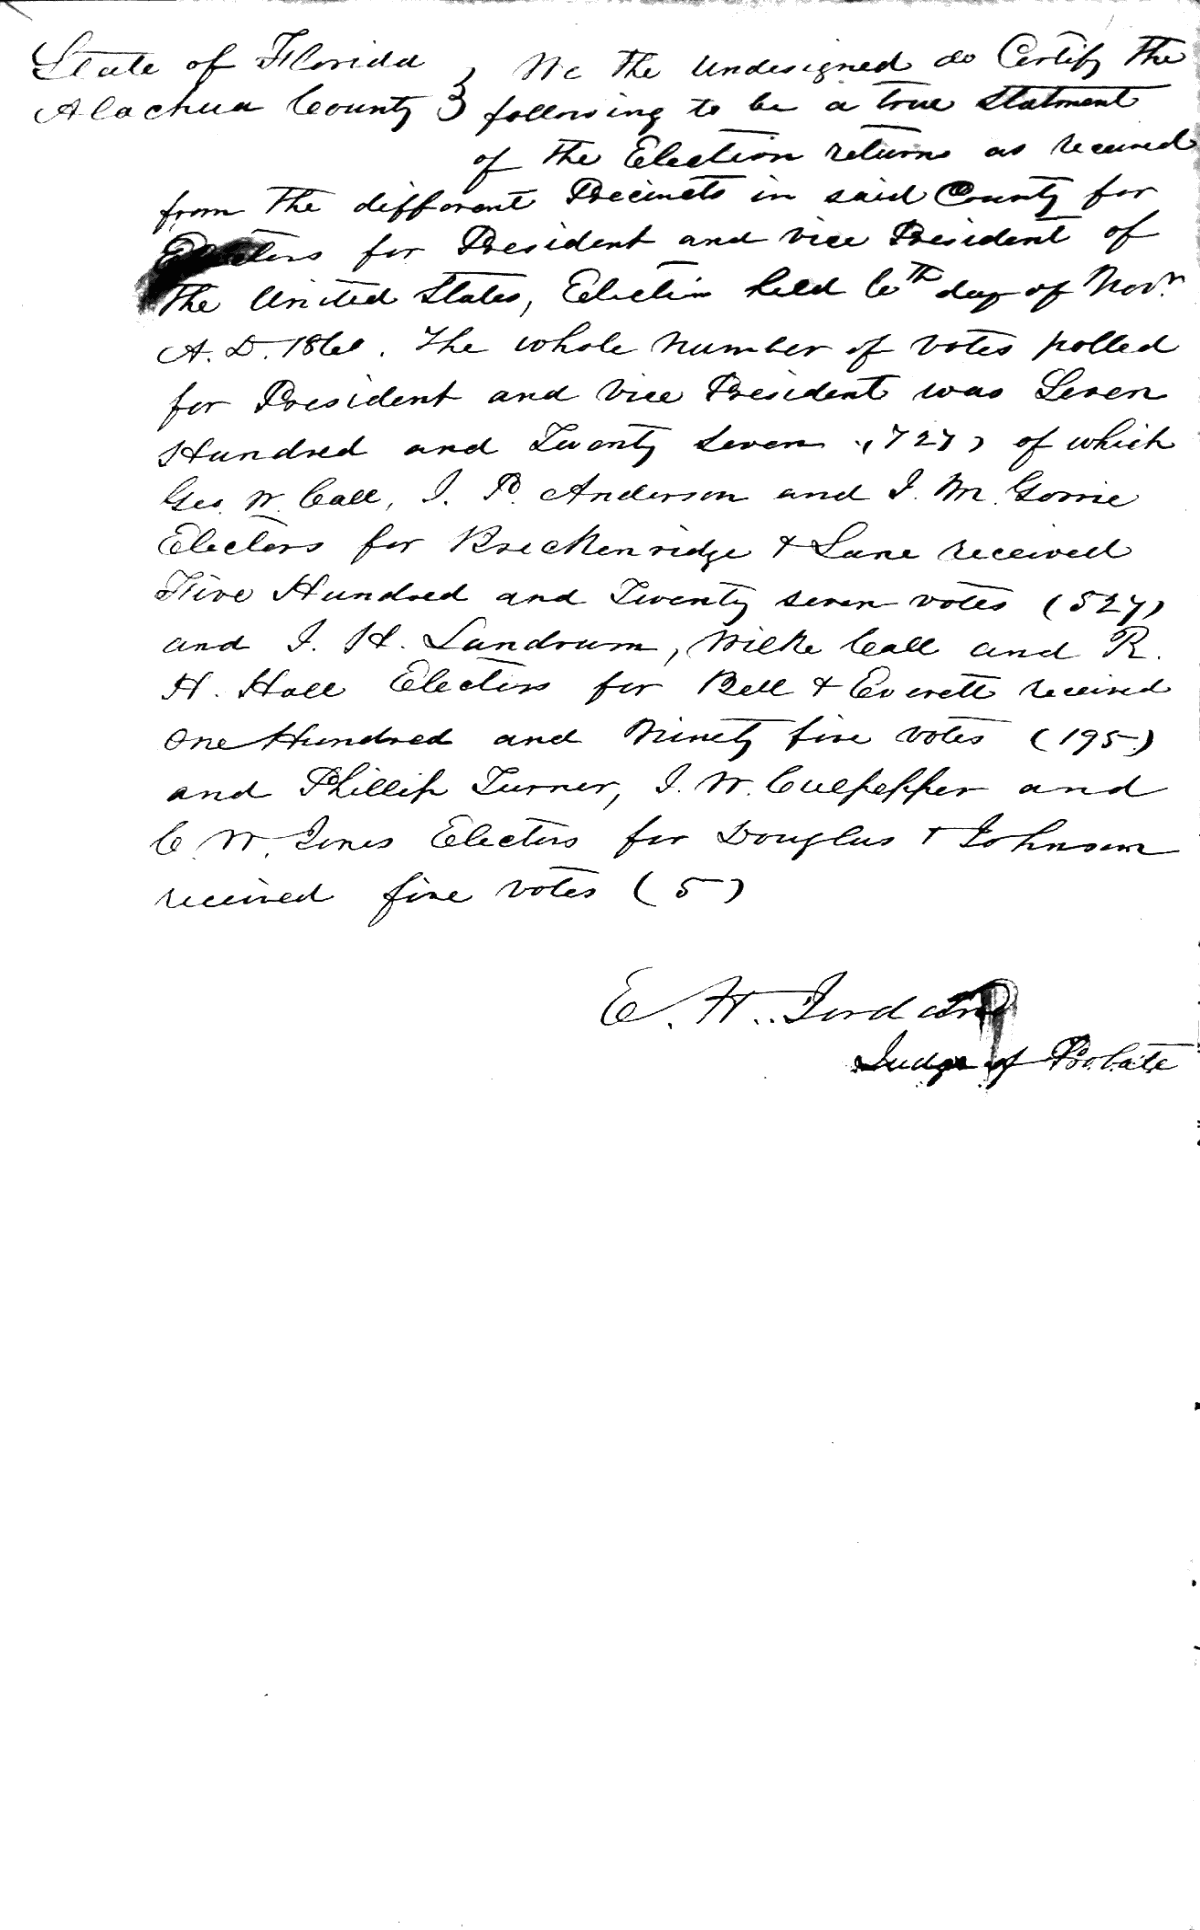 State of Florida } We the undesigned do Certify the
Alachua County } following to be a true statment
of the Election returns as received
from the different Precincts in said County for
Electors for President and vice President of
the United States, Election held 6th day of Novr
A. D. 1860. The whole number of votes polled
for President and Vice President was Seven
Hundred and Twenty seven (727) of which
Geo. W. Call, J. P. Anderson and J. M. Gorrie
Electors for Breckenridge & Lane received
Five Hundred and Twenty seven votes (527)
and J. H. Landrum, Wilke Call and R.
H. Hall Electors for Bell & Everett received
One Hundred and Ninety five votes (195)
and Phillip Turner, J. W. Culpepper and
C. W. Jones Electors for Douglas & Johnson
received five votes (5)
E. H. Jordan
Judge of Probate